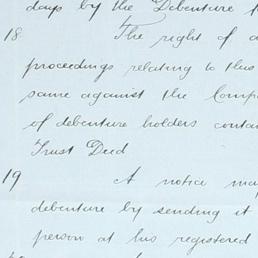 days by the Debenture
18 The right of a
proceedings relating to this
same against the Comp
of debenture holders contai
Trust Deed
19 A notice ma
debenture by sending it
person at his registered